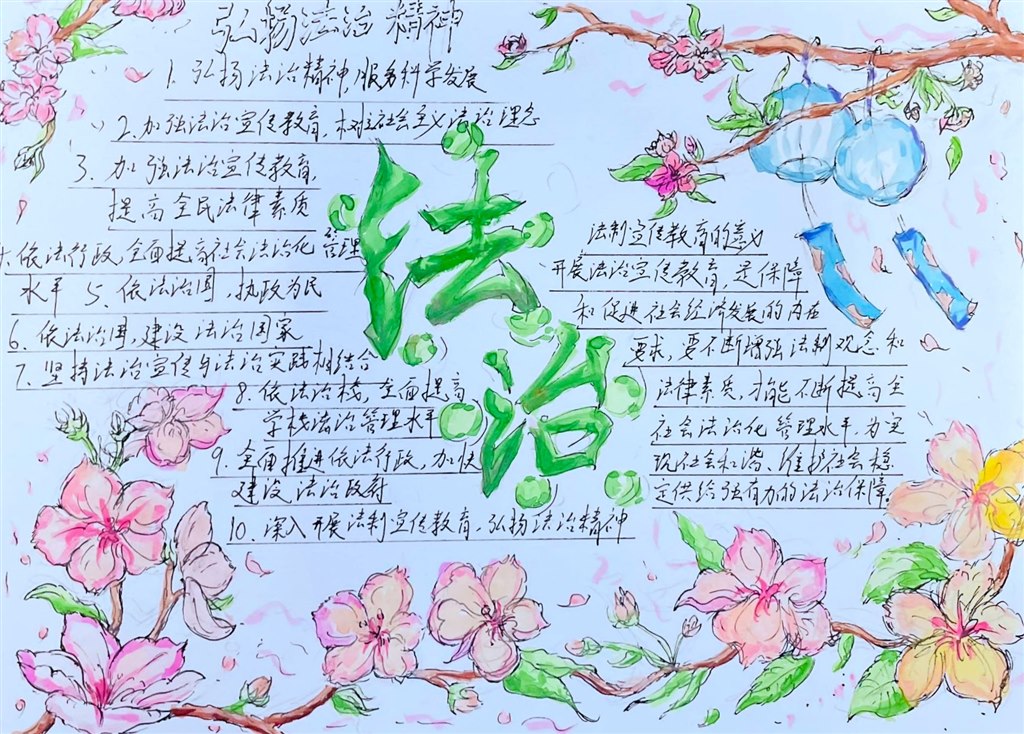 弘扬法治精神
1. 弘扬法治精神,服务科学发展
2. 加强法治宣传教育,树立社会主义法治理念
3. 加强法治宣传教育,
提高全民法律素质
依法行政,全面提高社会法治化管理
水平 5、依法治国,执政为民
6、依法治国,建设法治国家
7、坚持法治宣传与法治实践相结合
8、依法治校,全面提高
学校法治管理水平
9、全面推进依法行政,加快
建设法治政府
10、深入开展法制宣传教育,弘扬法治精神
法治
法制宣传教育的意义
开展法治宣传教育,是保障
和促进社会经济发展的内在
要求,要不断增强法制观念和
法律素质,才能不断提高全
社会法治化管理水平,为实
现社会和谐、维护社会稳
定供给强有力的法治保障。